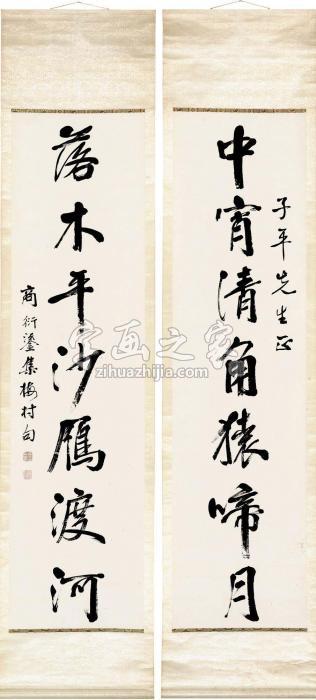 子平先生正
中宵清角猿啼月
落木平沙雁渡河
商衍鎏集梅村句
字画之家
zihuazhijia.com